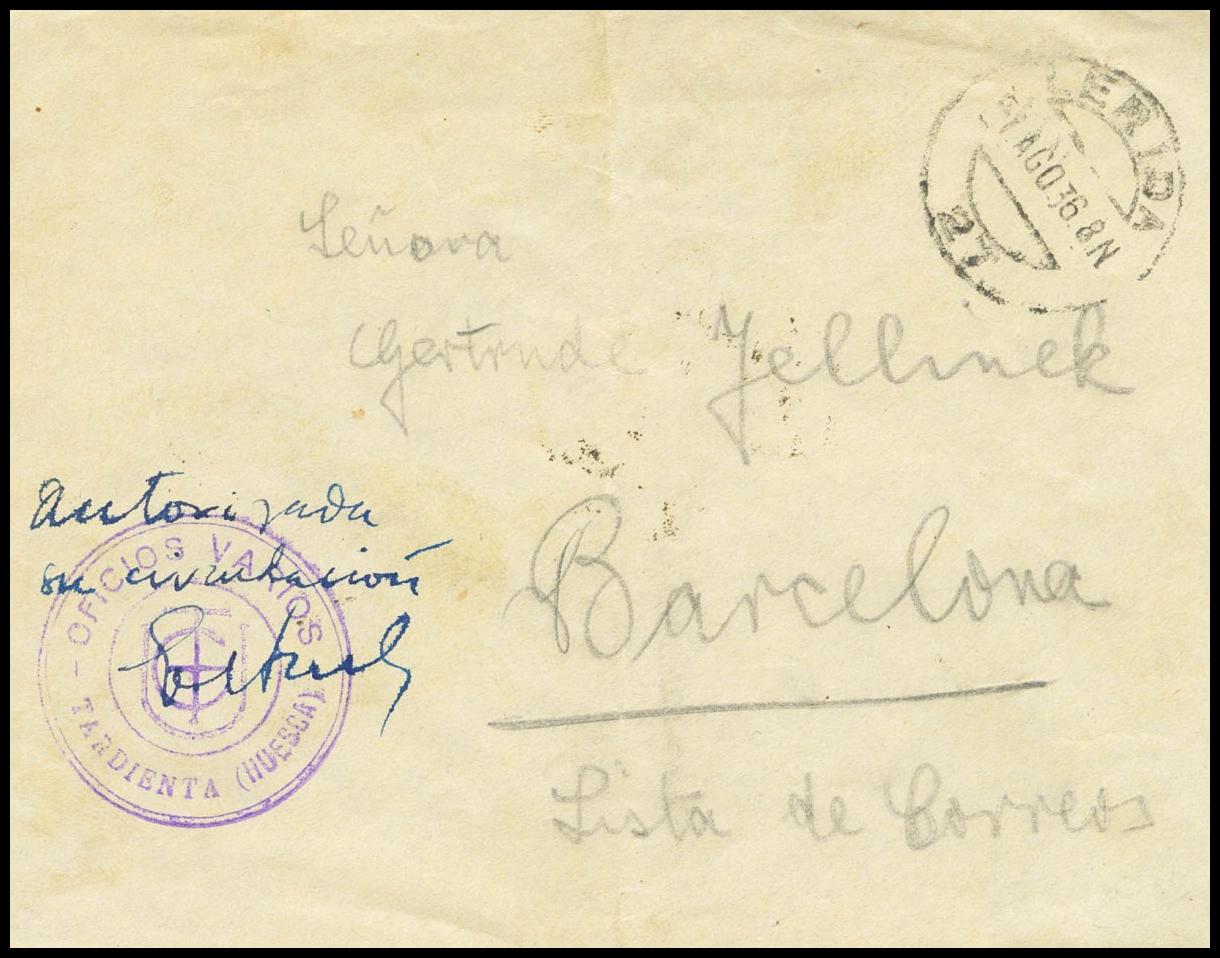 LERIDA
AGO 36. 8N
27
Señora
Gertrude Jellinek
Autorizada
su circulación
- OFICIOS VARIOS
TARDIENTA (HUESCA)
Barcelona
Lista de Correos